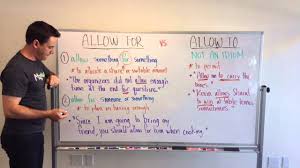 ALLOW FOR
vs
ALLOW TO
① allow something for something
* to allocate a share or suitable amount
"The organizers did not allow enough
time at the end for questions."
② allow for someone or something
* to plan on having
"Since I am going to bring my
friend, you should allow for him when cooking."
NOT AN IDIOM
* to permit
* Allow me to carry the
* Kevin allows Sharad
to win at table tennis
sometimes.